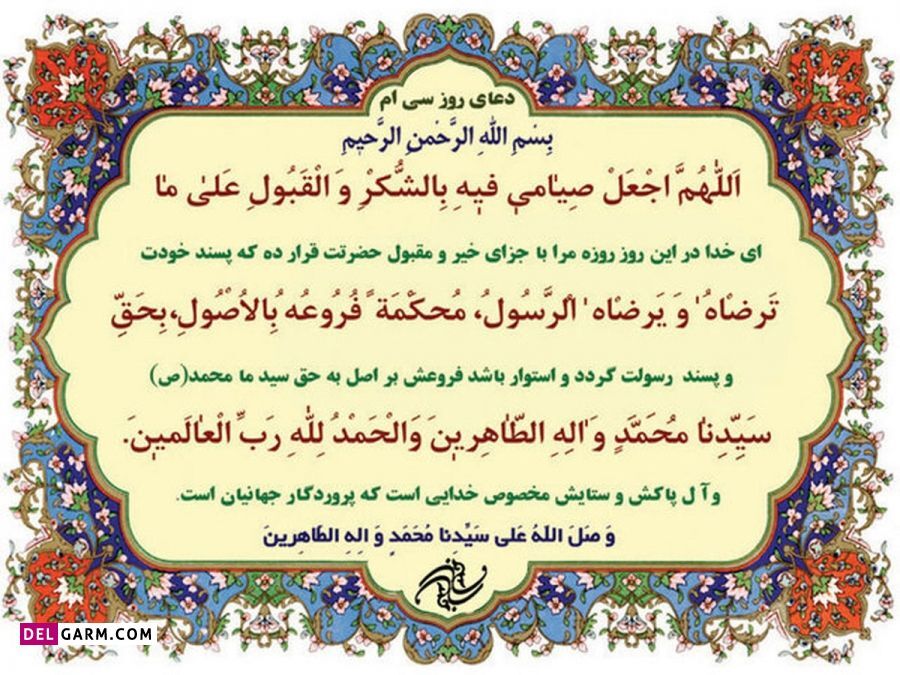 دعای روز سی ام
بِسْمِ اللهِ الرَّحْمنِ الرَّحیٖمِ
اَللّٰهُمَّ اجْعَلْ صِیٰامیٖ فیٖهِ بِالشُّکرْ وَ الْقَبُولِ عَلیٰ مٰا
ای خدا در این روز روزه مرا با جزای خیر و مقبول حضرتت قرار ده که پسند خودت
تَرضٰاهُ وَ یَرضٰاه الرَّسُولُ، مُحکَمَةً فُرُوعُهُ بِالاُصُولِ،بِحَقِّ
و پسند رسولت گردد و استوار باشد فروعش بر اصل به حق سید ما محمد(ص)
سَیِّدِنٰا مُحَمَّدٍ وَاٰلِهِ الطّٰاهِریٖنَ وَالْحَمْدُ لِلّٰهِ رَبِّ الْعٰالَمیٖنَ.
و آ ل پاکش و ستایش مخصوص خدایی است که پروردگار جهانیان است.
وَ صَلَ اللهُ عَلی سَیِّدِنا مُحَمَدٍ وَ الِهِ الطاهِرینَ
DELGARM.COM